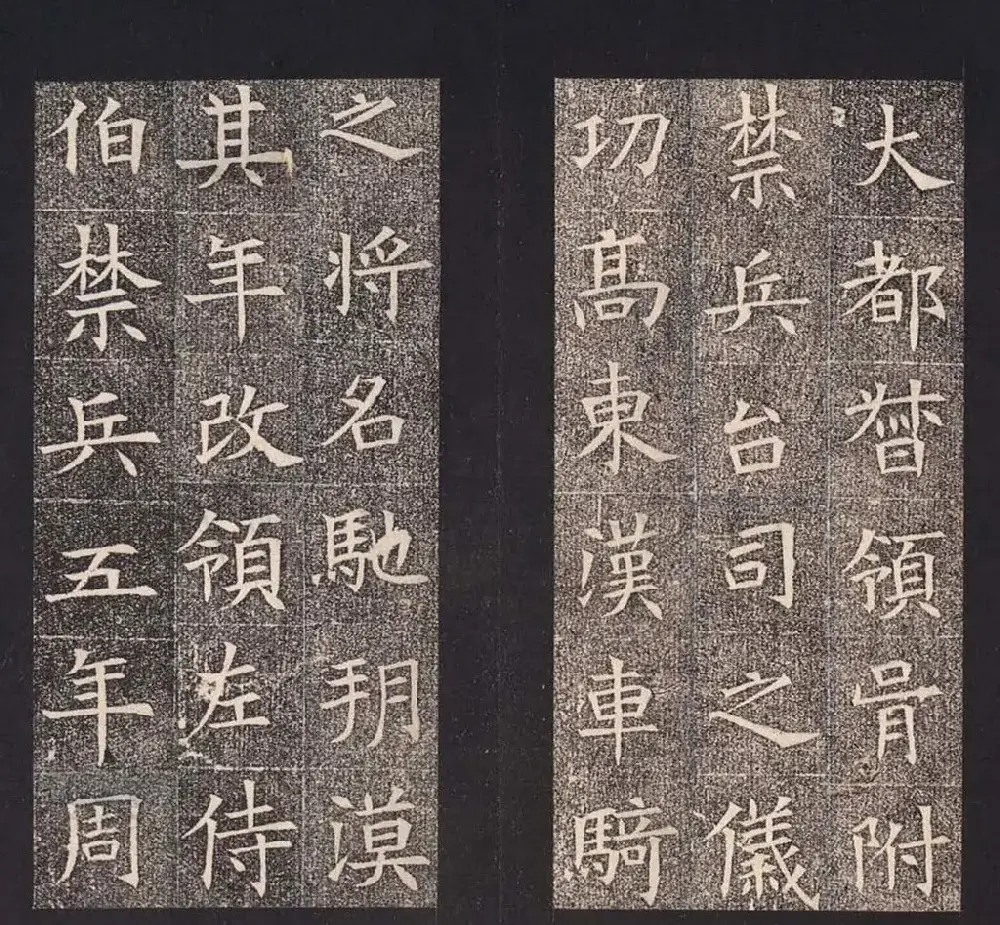 大都督領胥附
禁兵台司之儀
功髙東漢車騎
之将名馳朔漠
其年改領左侍
伯禁兵五年周